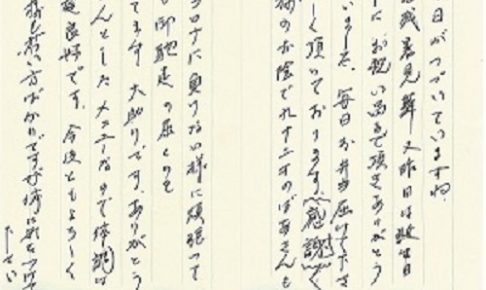 日がつづいていますね、
見舞 又昨日は
にお祝い迄頂きありがとう
いました。毎日お弁当届けて下さ
しく頂いております。感謝
様のお陰で九十二才のばあさんも
コロナに負けない様に頑張って
御馳走の届くのを
てます 大助りです、ありがとう
んとしたメニューなので体調は
良好です。今後ともよろしく
様も若い方ばかりですが体に気をつけて
下さい